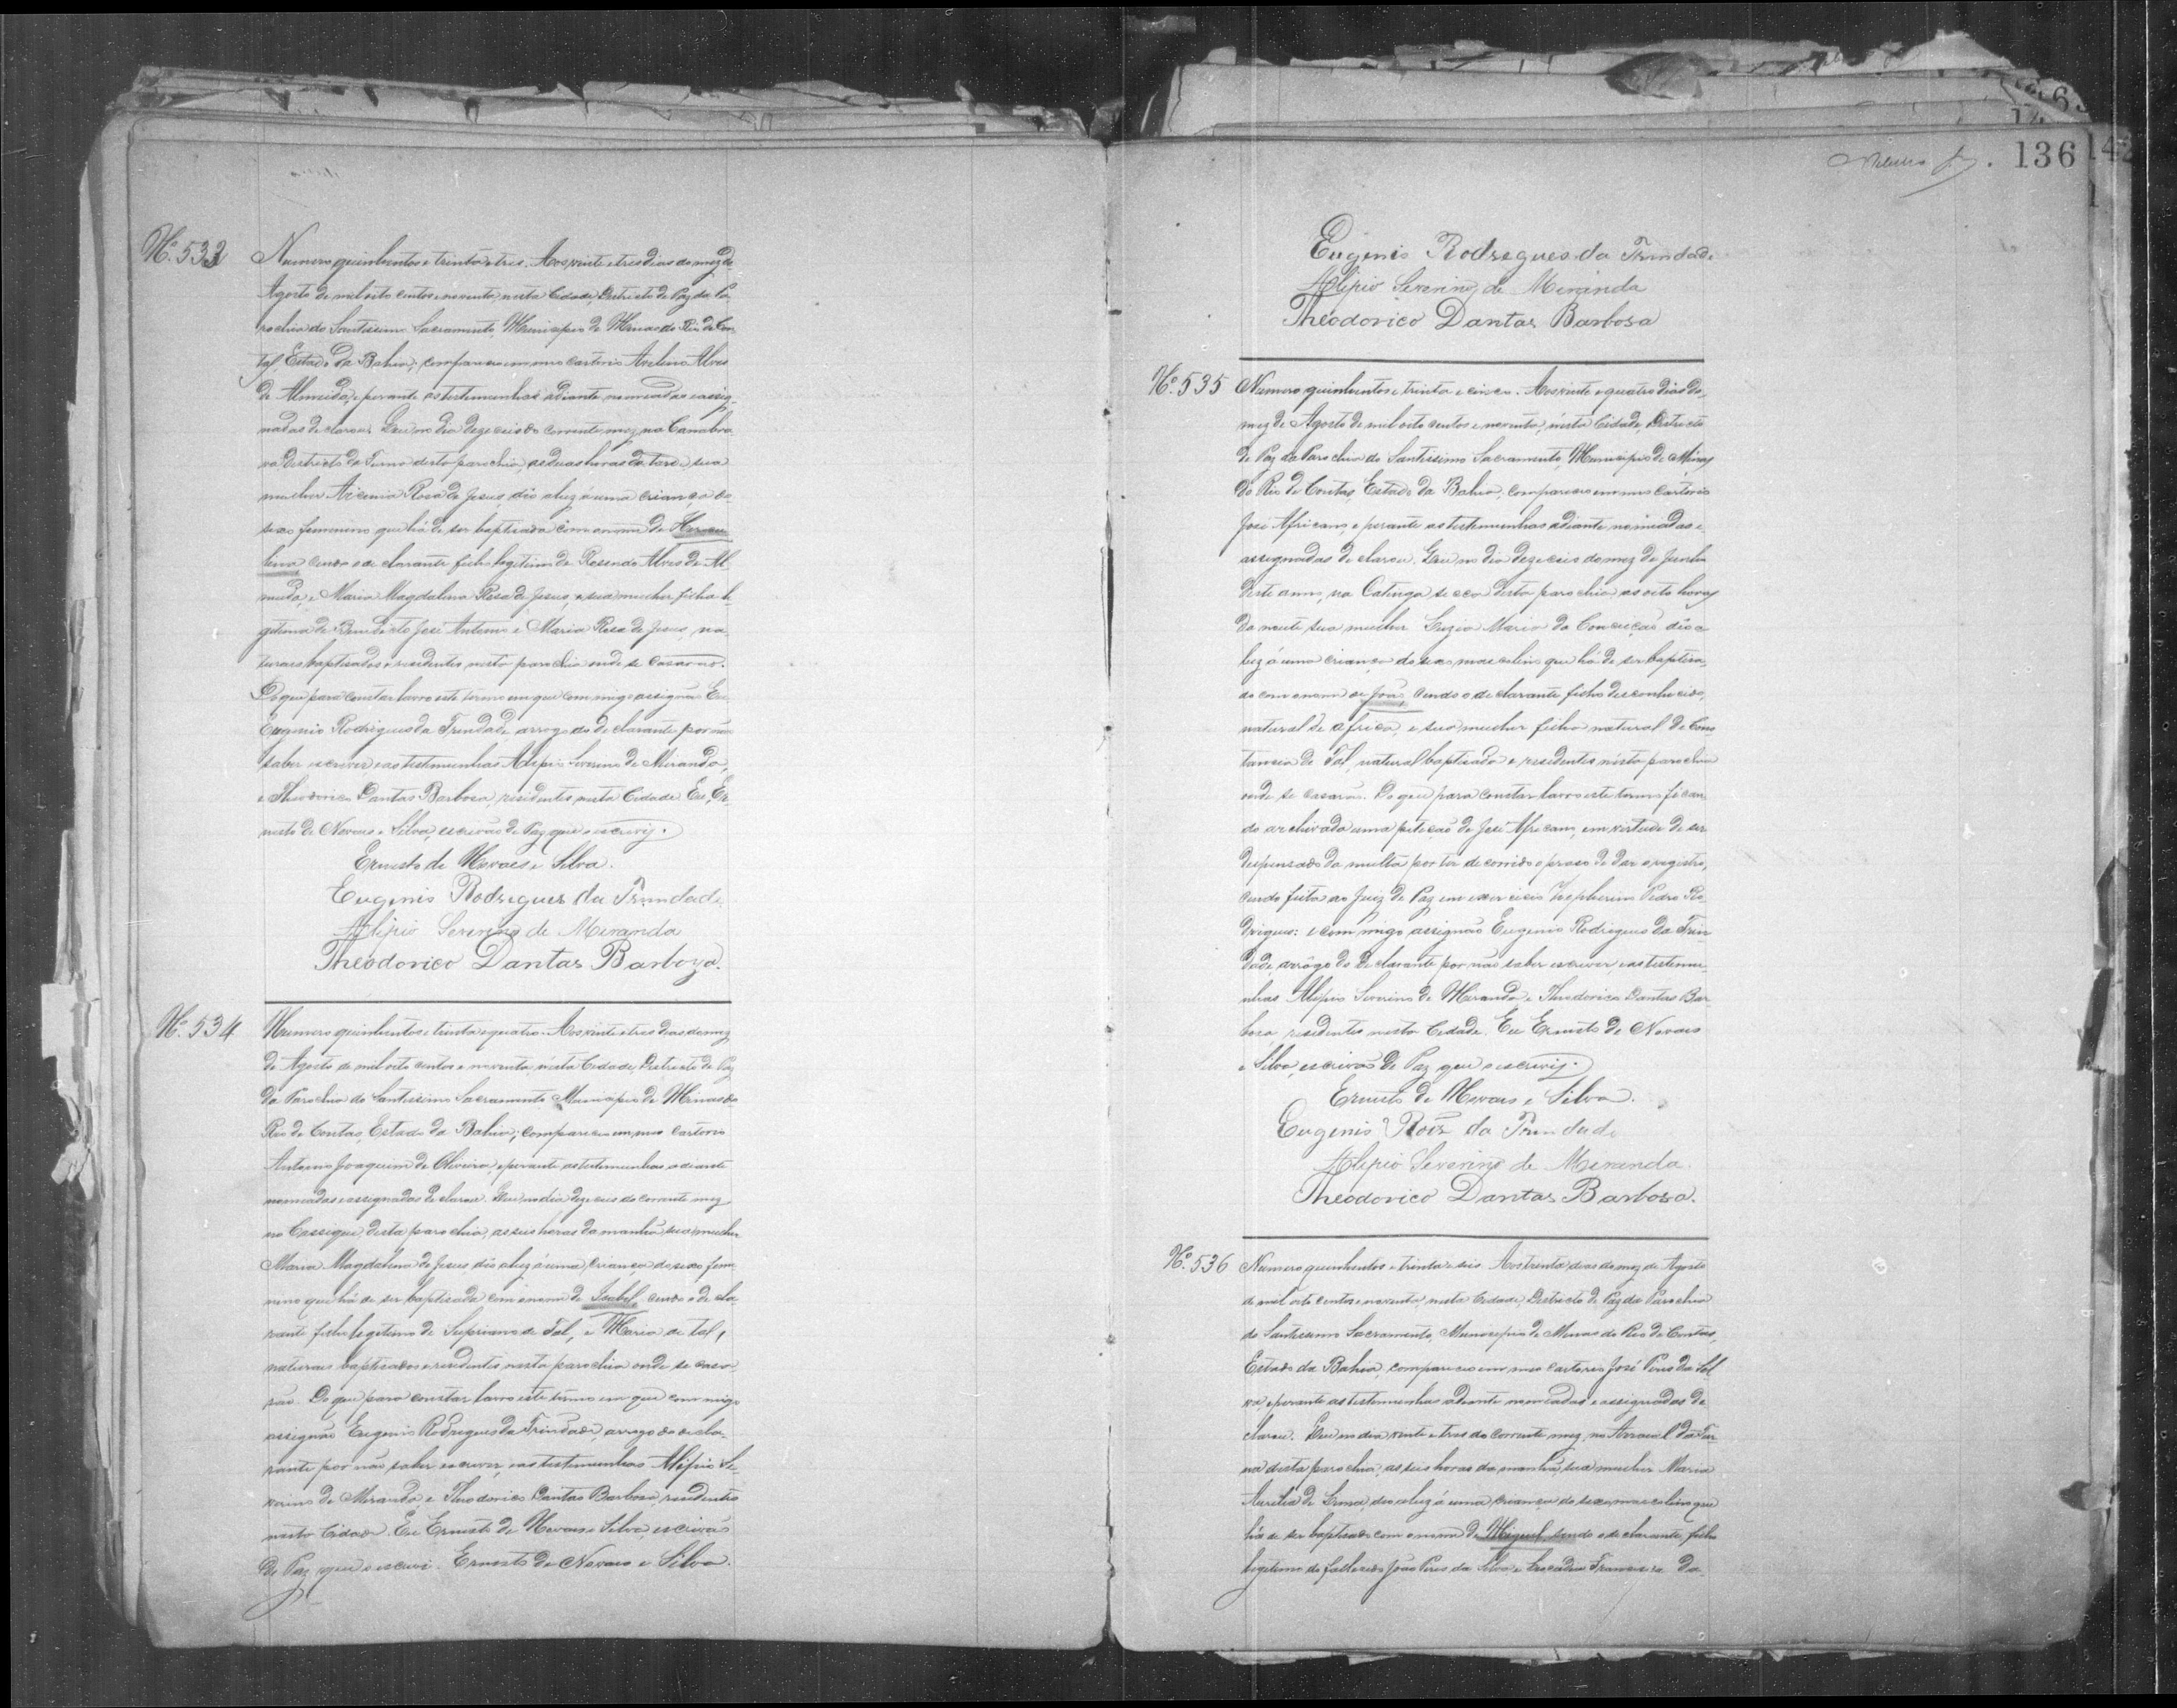 Nº 533
Numero quinhentos e trinta e tres. Aos vinte e tres dias do mez de
Agosto de mil oito centos e noventa, nesta Cidade, Destricto de Paz da Pa
rochia do Santissimo Sacramento, Municipio de Minas do Rio de Con
tas, Estado da Bahia; compareceo em meo cartorio Avelino Alves
de Almeida, e perante as testemunhas adiante nomeadas e assig-
nadas declarou: Que no dia dezeceis do corrente mez, na Canabra
va districto do Furna desta parochia, as duas horas da tarde sua
mulher Rosa de Jesus, dêo a luz á uma criança do
sexo femenino que há de ser baptisada com o nome de Hercu
lina, cendo o declarante filho legitimo de Rosendo Alves de Al
meida, e Maria Magdalena Rosa de Jesus, e sua mulher, filha le
gitima de Benedicto José Antonio e Maria Rosa de Jesus, na
turaes baptisados e residentes nesta parochia onde se casarão.
Do que para constar lavro este termo em que com migo assignão Eu
Eugenio Rodrigues da Trindade arrogo do declarante por não
saber escrever e as testemunhas Alipio Severino de Miranda,
e Theodorico Dantas Barbosa, residentes nesta Cidade. Eu, Er-
nesto de Novaes e Silva, escrivão de Paz que o escrevy.
Ernesto de Novaes e Silva.
Eugenio Rodrigues da Trindade
Alipio Severino de Miranda
Theodorico Dantas Barboza.
Nº 534
Numero quinhentos e trinta e quatro. Aos vinte e tres dias do mez
de Agosto de mil oito centos e noventa, nésta Cidade, Destricto de Paz
da Parochia do Santissimo Sacramento Municipio de Minas do
Rio de Contas, Estado da Bahia; compareceo em meo cartorio
Antonio Joaquim de Oliveira, e perante as testemunhas adiante
nomeadas e assignadas declarou: Que, no dia dezeceis do corrente mez
no Cassique, desta parochia, as seis horas da manhã, sua mulher
Maria Magdalena de Jesus dêo a luz á uma criança do sexo feme
nino que há de ser baptisada com o nome de Isabel, cendo o decla-
rante filho legitimo de Supriano de Tal, e Maria de tal,
naturaes baptisados e residentes nesta parochia onde se casa
rão. Do que para constar lavro este termo em que com migo
assignão Eugenio Rodrigues da Trindade, arrogo do decla-
rante por não saber escrever, e as testemunhas Alipio Se-
verino de Miranda, e Theodorico Dantas Barbosa, residentes
nesta Cidade. Eu Ernesto de Novaes e Silva escrivão
de Paz que o escrevi. Ernesto de Novaes e Silva.
136
Eugenio Rodregues da Trindade
Alipio Severino de Miranda
Theodorico Dantas Barbosa
Nº 535
Numero quinhentos e trinta e cinco. Aos vinte e quatro dias do
mez de Agosto de mil oito centos e noventa, nésta Cidade, Destricto
de Paz da Parochia do Santissimo Sacramento, Municipio de Minas
do Rio de Contas, Estado da Bahia, compareceo em meo cartorio
José Africano, e perante as testemunhas adiante nomeadas e
assignadas declarou: Que no dia dezeceis do mez de Junho
deste anno, na Catinga secca desta parochia, as oito horas
da noute sua mulher Luzia Maria da Conceição dêo a
luz á uma criança do sexo masculino que há de ser baptisa
do com o nome de João, cendo o declarante filho desconhecido,
natural de africa, e sua mulher filha natural de Cons
tancia de Tal, natural baptisada e residentes nésta parochia
onde se casarão. Do que para constar lavro este termo fican
do archivada uma petição de José Africano, em vertude de ser
despensado da multa por ter decorrido o praso de dar o registro,
cendo feita ao Juiz de Paz em exercicio Zepherino Pedro Ro-
drigues: e com migo assignão Eugenio Rodrigues da Trin
dade, arrôgo do declarante por não saber escrever e as testemu-
nhas Alipio Severino de Miranda e Theodorico Dantas Bar
bosa, residentes nesta Cidade. Eu Ernesto de Novaes
e Silva, escrivão de Paz que o escrevy.
Ernesto de Novaes e Silva.
Eugenio Roiz da Trindade
Alipio Severino de Miranda.
Theodorico Dantas Barbosa.
Nº 536
Numero quinhentos e trinta e seis. Aos trinta dias do mez de Agosto
de mil oito centos e noventa, nesta Cidade, Destricto de Paz da Parochia
do Santissimo Sacramento, Municipio de Minas do Rio de Contas,
Estado da Bahia, compareceo em meo cartorio José Pires da Sil
va, e perante as testemunhas adiante nomeadas e assignadas de
clarou: Que no dia vinte e tres do corrente mez, no Arraial da Fur
na desta parochia, as seis horas da manhã, sua mulher Maria
de Lima deo a luz á uma criança do sexo masculino que
há de ser baptisado com o nome de Miguel, sendo o declarante, filho
legitimo do fallecido João Pires da Silva e Leocadia Francisca da